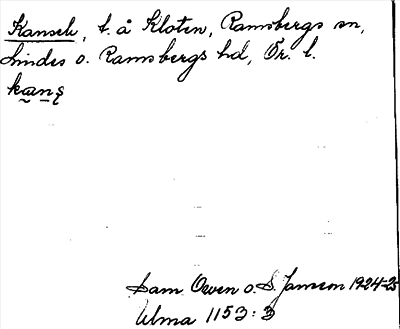 Kansek, t. å Kloten, Ramsbergs sn,
Lindes o. Ramsbergs hd, Ör. l.
kans̨
Sam Owen o. S. Janson 1924-25
Ulma 1153:3